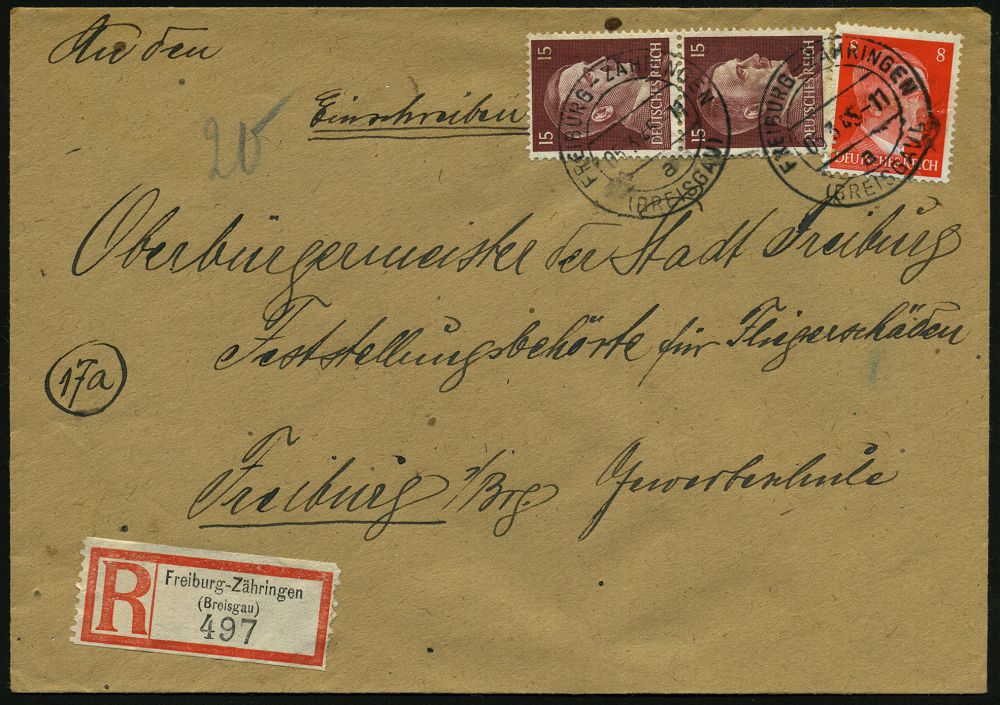 An den
Einschreiben
20
15 15
15 15
DEUTSCHES REICH
DEUTSCHES REICH
8 8
DEUTSCHES REICH
FREIBURG-ZÄHRINGEN
a
(BREISGAU)
FREIBURG-ZÄHRINGEN
05.3.45-11
a
(BREISGAU)
Oberbürgermeister der Stadt Freiburg
Feststellungsbehörte für Fliegerschäden
17a
Freiburg i/Brg. Gewerbeschule
R
Freiburg-Zähringen
(Breisgau)
497